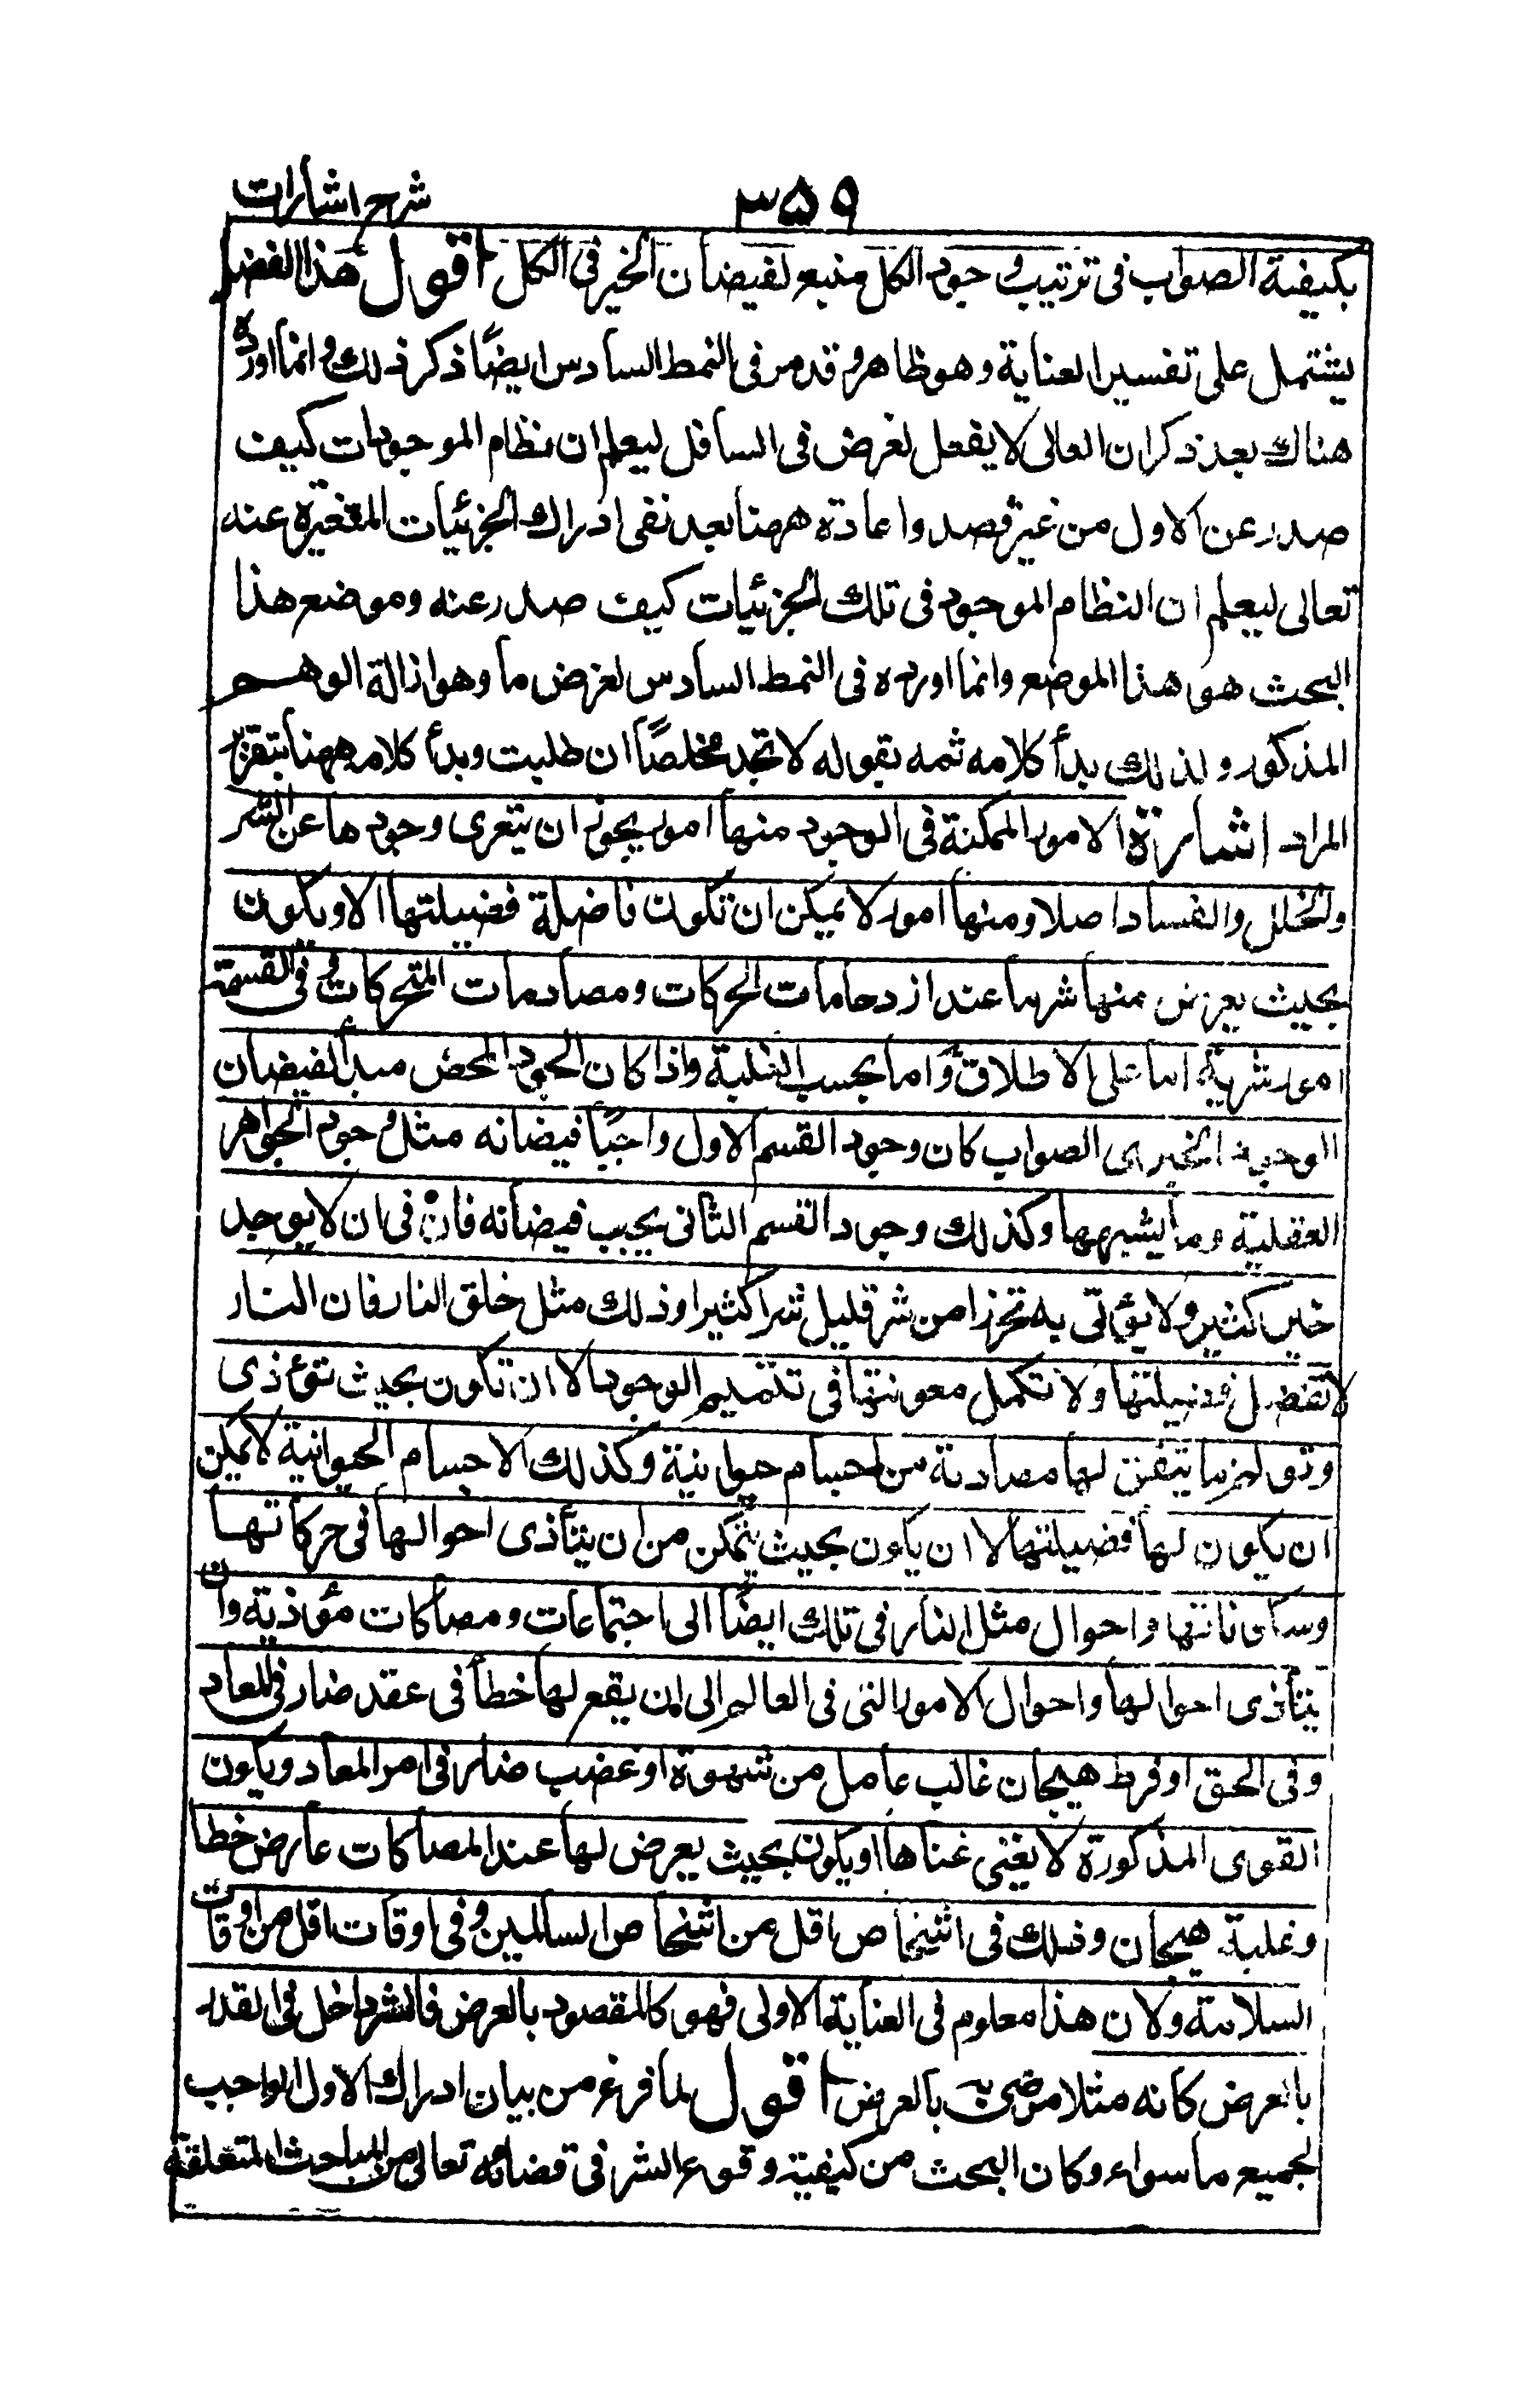 شرح اشارات
٣٥٩
بكيفية الصواب فى ترتيب وجود الكل منبع لفيضان الخير فى الكل اقول هذا الفصل
يشتمل على تفسير العناية وهو ظاهر وقد مر فى النمط السادس ايضًا ذكر ذلك وانما اورده
هناك بعد ذكر ان العالى لا يفعل لغرض فى السافل ليعلم ان نظام الموجودات كيف
صدر عن الاول من غير قصد واعادة ههنا بعد نفى ادراك الجزئيات المتغيرة عنه
تعالى ليعلم ان النظام الموجود فى تلك الجزئيات كيف صدر عنه وموضع هذا
البحث هو هذا الموضع وانما اورده فى النمط السادس لغرض ما وهو ازالة الوهم
المذكور ولذلك بدأ كلامه ثمه بقوله لا تجد مخلصًا ان طلبت وبدأ كلامه ههنا بتقرير
المراد اشارة الامور الممكنة فى الوجود منها امور يجوز ان يتعرى وجودها عن الشر
والخلل والفساد اصلا ومنها امور لا يمكن ان تكون فاضلة فضيلتها الا ويكون
بحيث يعرض منها شر ما عند ازدحامات الحركات ومصادمات المتحركات وفى القسمة
امور شرية اما على الاطلاق واما بحسب الغلبة واذا كان الجود المحض مبدأ لفيضان
الوجود الخيرى الصواب كان وجود القسم الاول واجبًا فيضانه مثل وجود الجواهر
العقلية وما يشبهها وكذلك وجود القسم الثانى يجب فيضانه فان فى ان لا يوجد
خير كثير ولا يؤتى به تحرزا من شر قليل شرا كثيرا وذلك مثل خلق النار فان النار
لا تفضل فضيلتها ولا تكمل معونتها فى تتميم الوجود الا ان تكون بحيث تؤذى
وتولم ما يتفق لها مصادمة من اجسام حيوانية وكذلك الاجسام الحيوانية لا يمكن
ان يكون لها فضيلتها الا ان يكون بحيث يمكن من ان يتأذى احوالها فى حركاتها
وسكوناتها واحوال مثل النار فى تلك ايضًا الى اجتماعات ومصاكات مؤذية وان
يتأذى احوالها واحوال الامور التى فى العالم الى ان يقع لها خطأ فى عقد ضار فى المعاد
وفى الحق او فرط هيجان غالب عامل من شهوة او غضب ضار فى امر المعاد ويكون
القوى المذكورة لا يغنى غناها او يكون بحيث يعرض لها عند المصاكات عارض خطا
وغلبة هيجان وذلك فى اشخاص اقل من اشخاص السالمين وفى اوقات اقل من اوقات
السلامة ولان هذا معلوم فى العناية الاولى فهو كالمقصود بالعرض فالشر داخل فى القدر
بالعرض كانه مثلا مرضى به بالعرض اقول لما فرغ من بيان ادراك الاول الواجب
لجميع ما سواه وكان البحث من كيفية وقوع الشر فى قضائه تعالى من المباحث المتعلقة